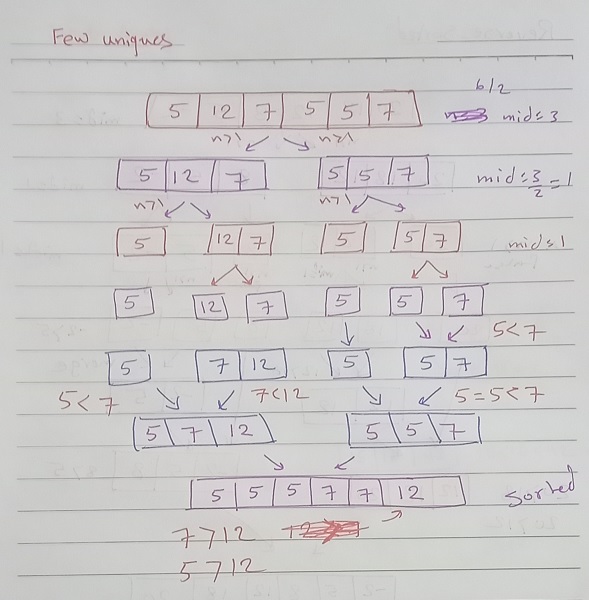 Few uniques
6/2
5 12 7 5 5 7 mid=3
n>1 n>1
5 12 7 5 5 7 mid=3/2=1
n>1 n>1
5 12 7 5 5 7 mid=1
5 12 7 5 5 7
5<7
5 7 12 5 5 7
5<7 7<12 5=5<7
5 7 12 5 5 7
5 5 5 7 7 12 Sorted
7>12
5>12